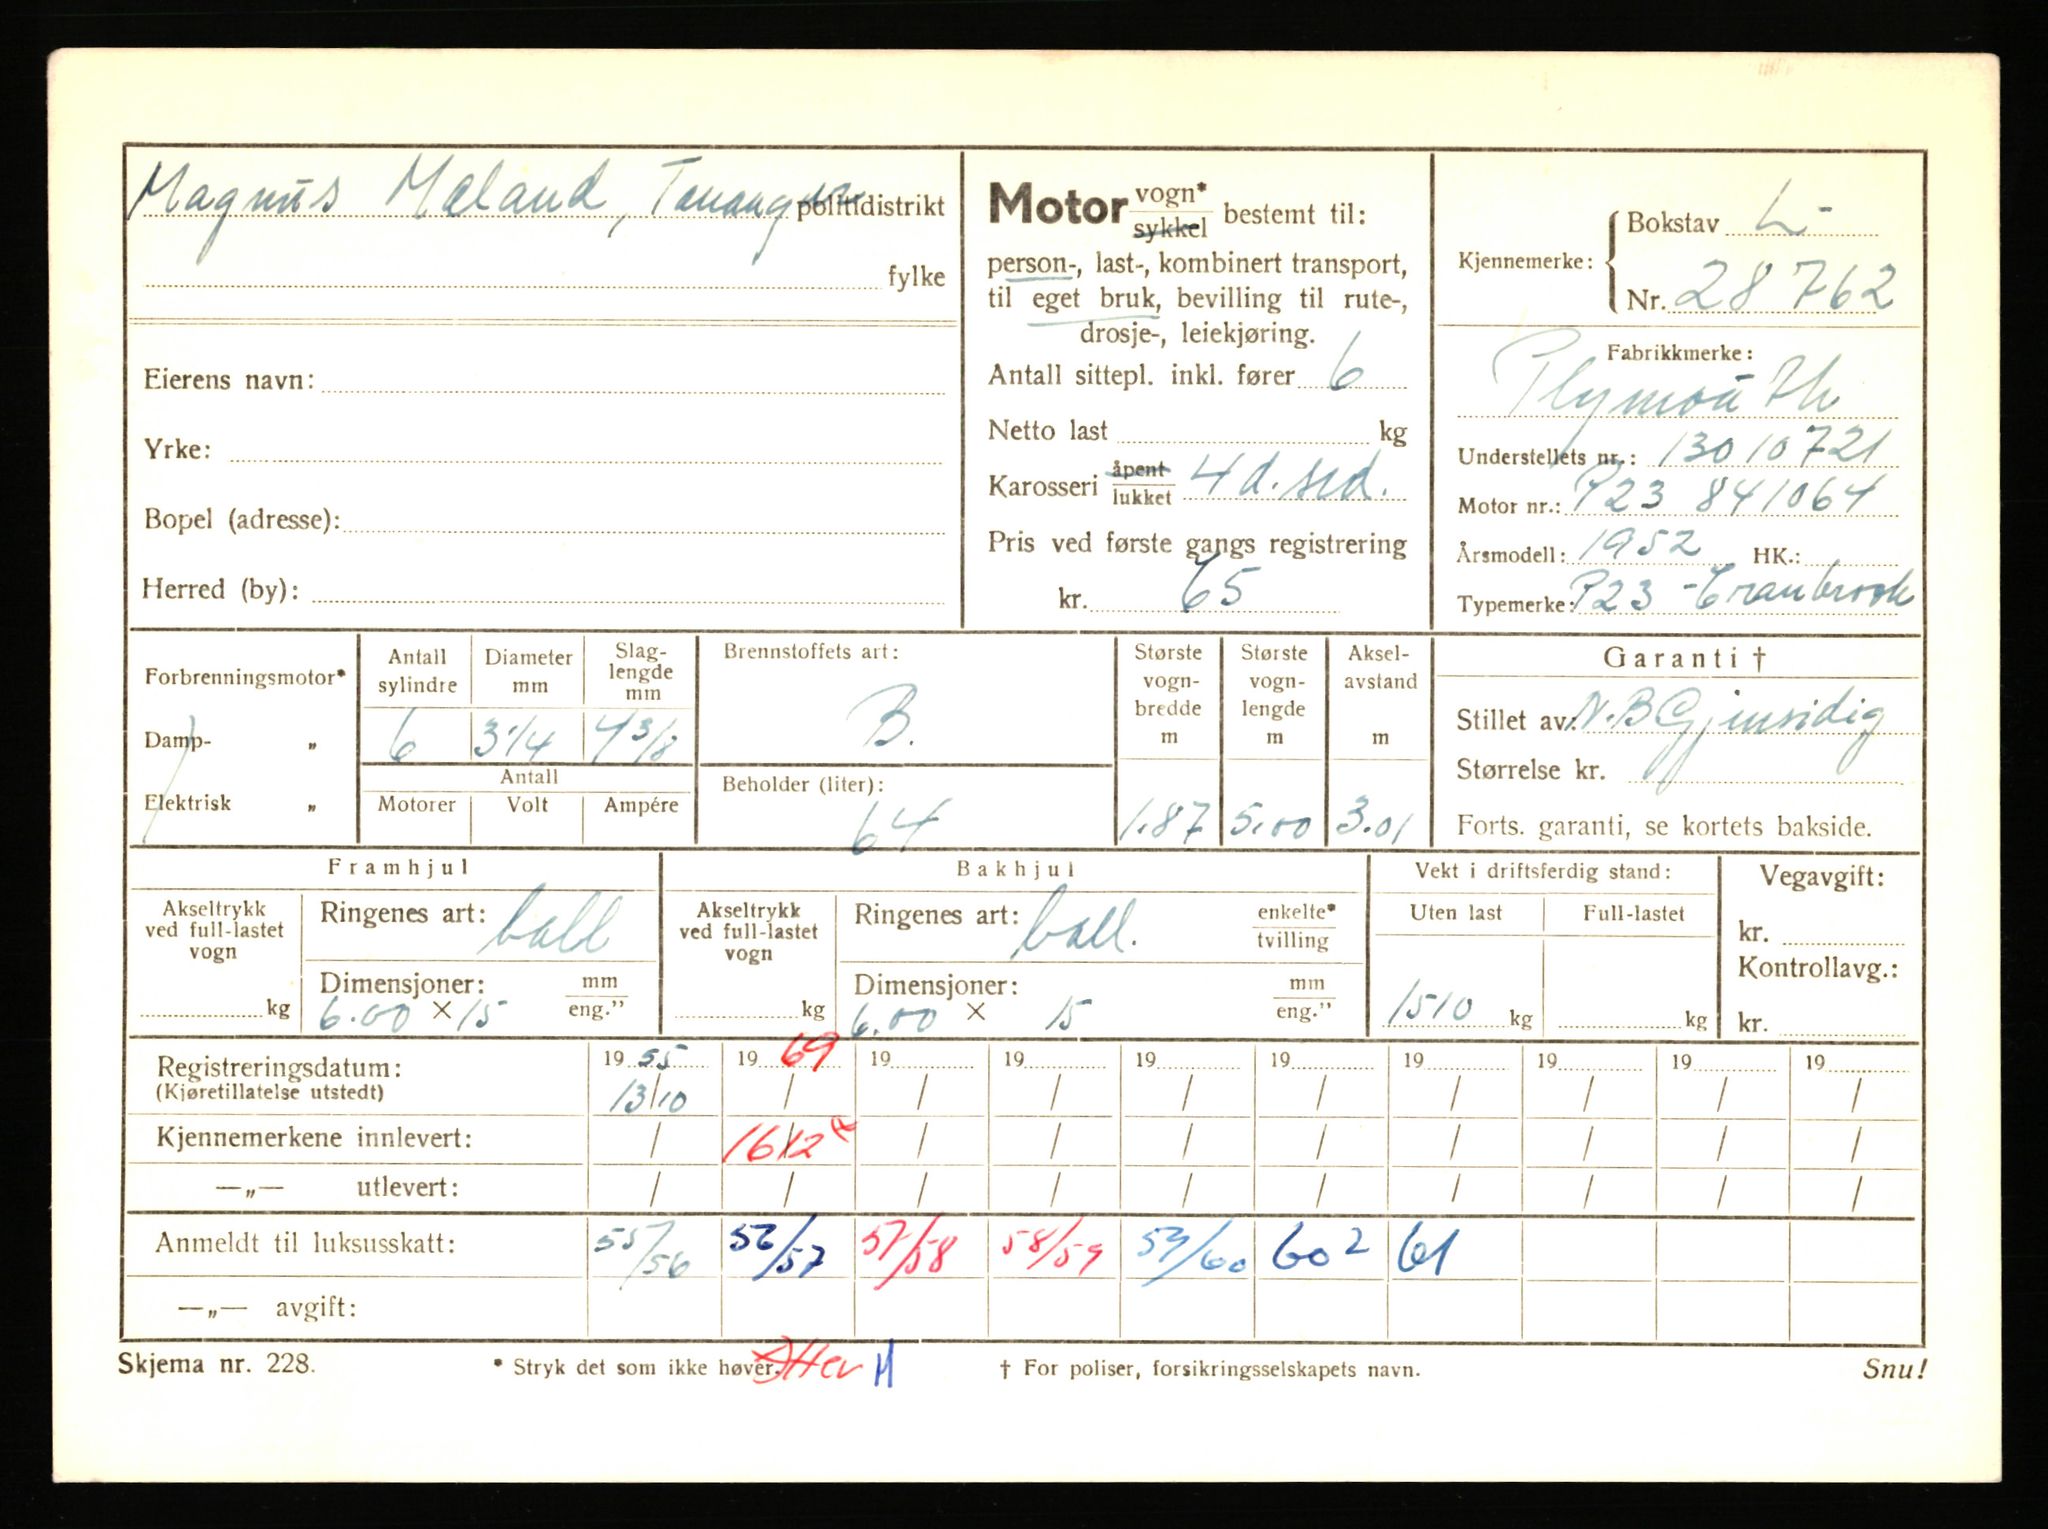 Magnus Mæland, Tananger politidistrikt
fylke
Eierens navn:
Yrke:
Bopel (adresse):
Herred (by):
Motor vogn* sykkel bestemt til:
person-, last-, kombinert transport,
til eget bruk, bevilling til rute-,
drosje-, leiekjøring.
Antall sittepl. inkl. fører 6
Netto last kg
Karosseri åpent lukket 4 d. sed.
Pris ved første gangs registrering
kr. 65
Kjennemerke: Bokstav L-
Nr. 28762
Fabrikkmerke:
Plymouth
Understellets nr.: 13010721
Motor nr.: P23 841064
Årsmodell: 1952 HK.:
Typemerke: P23 - Cranbrook
Forbrenningsmotor*
Damp- „
Elektrisk „
Antall sylindre
Diameter mm
Slag-lengde mm
6 3 1/4 4 3/8
Antall
Motorer Volt Ampére
Brennstoffets art:
B.
Beholder (liter):
64
Største vogn-bredde m
1.87
Største vogn-lengde m
5.00
Aksel-avstand m
3.01
Garanti †
Stillet av: N.B Gjensidig
Størrelse kr.
Forts. garanti, se kortets bakside.
Framhjul
Akseltrykk ved full-lastet vogn
kg
Ringenes art: ball
Dimensjoner: mm eng.”
6.00 × 15
Bakhjul
Akseltrykk ved full-lastet vogn
kg
Ringenes art: ball. enkelte* tvilling
Dimensjoner: mm eng.”
6.00 × 15
Vekt i driftsferdig stand:
Uten last Full-lastet
1510 kg kg
Vegavgift:
kr.
Kontrollavg.:
kr.
Registreringsdatum: 19 55 19 69 19 19 19 19 19 19 19 19
(Kjøretillatelse utstedt) 13/10 / / / / / / / / /
Kjennemerkene innlevert: / 16/2 / / / / / / / /
—„— utlevert: / / / / / / / / / /
Anmeldt til luksusskatt: 55/56 56/57 57/58 58/59 59/60 60 2 61
—„— avgift:
Skjema nr. 228.
* Stryk det som ikke høver.
† For poliser, forsikringsselskapets navn.
Snu!